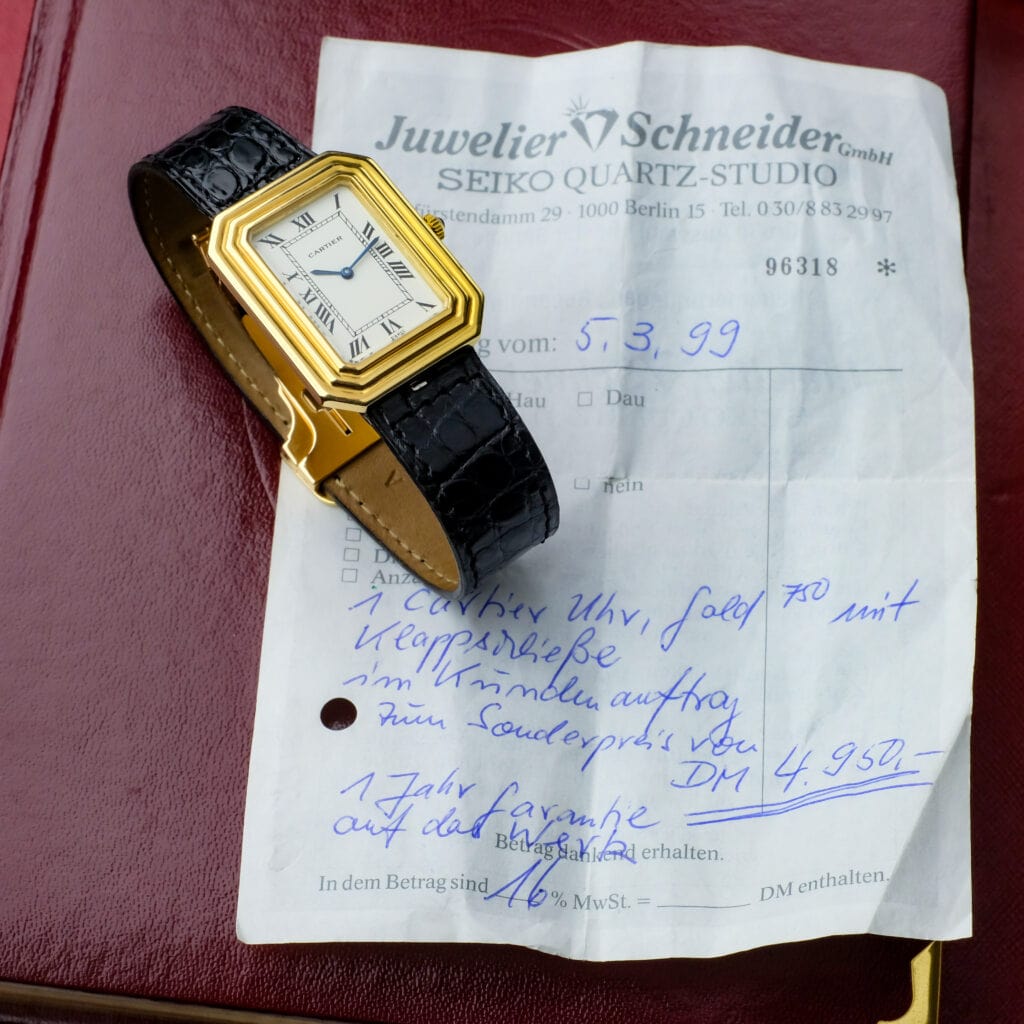 Juwelier Schneider GmbH
SEIKO QUARTZ-STUDIO
fürstendamm 29 · 1000 Berlin 15 · Tel. 030/8 83 29 97
96318 *
g vom: 5.3.99
Hau □ Dau
□ nein
Anza
1 Cartier Uhr, Gold 750 mit
Klappschließe
im Kundenauftrag
zum Sonderpreis von
DM 4.950,-
1 Jahr Garantie
auf das Werk
Betrag dankend erhalten.
In dem Betrag sind 16 % MwSt. = ________ DM enthalten.
CARTIER
XII
I
II
III
IIII
V
VI
VII
VIII
IX
X
XI